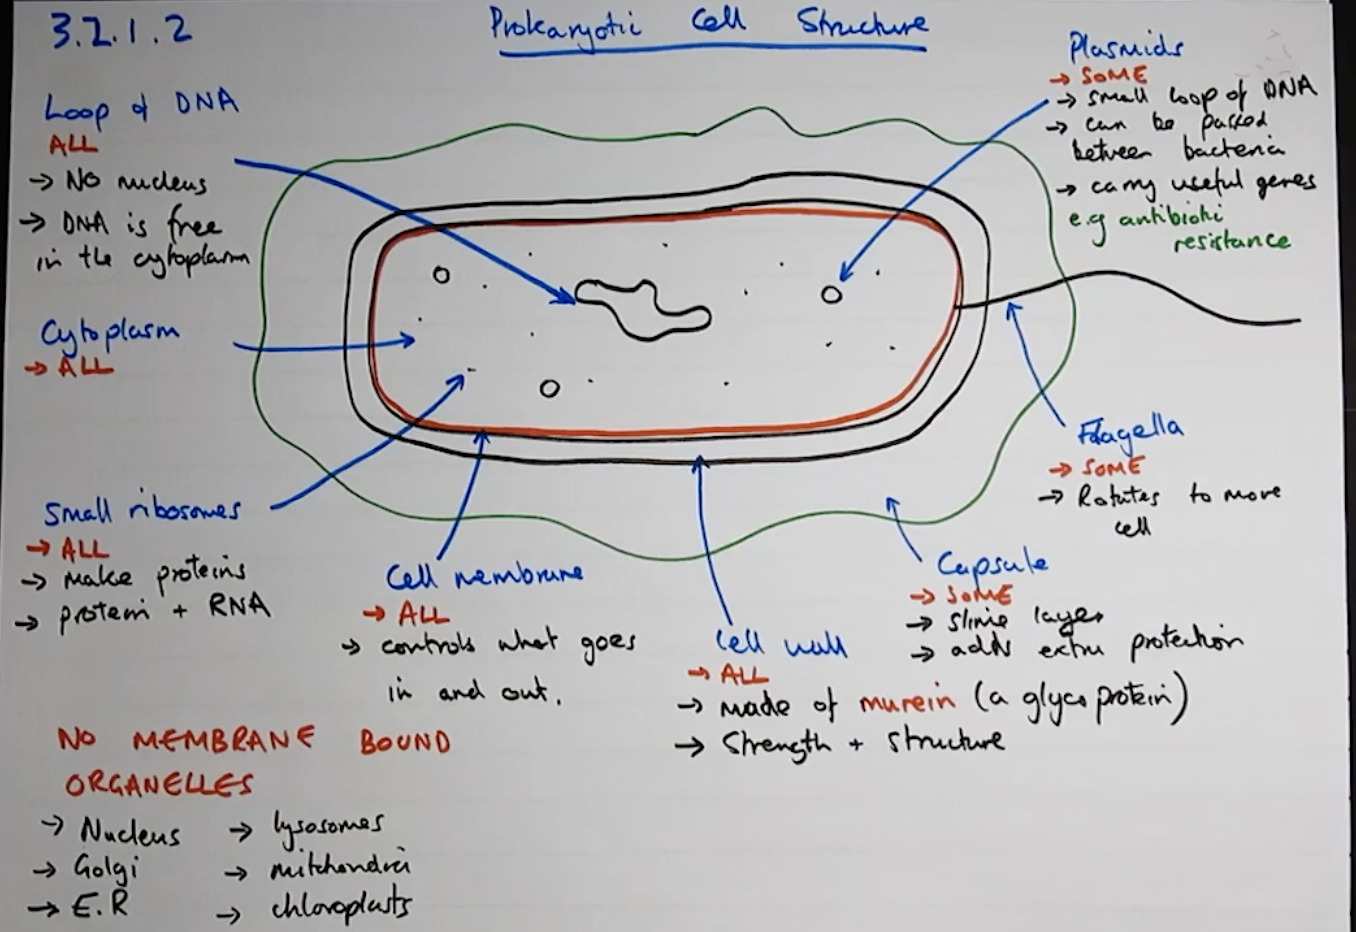 3.2.1.2
Prokaryotic Cell Structure
Loop of DNA
ALL
→ No nucleus
→ DNA is free
in the cytoplasm
Cytoplasm
→ ALL
Small ribosomes
→ ALL
→ make proteins
→ protein + RNA
Cell membrane
→ ALL
→ controls what goes
in and out.
Cell wall
→ ALL
→ made of murein (a glycoprotein)
→ Strength + structure
Capsule
→ SOME
→ slime layer
→ adds extra protection
Flagella
→ SOME
→ Rotates to move
cell
Plasmids
→ SOME
→ small loop of DNA
→ can be passed
between bacteria
→ carry useful genes
e.g antibiotic
resistance
NO MEMBRANE BOUND
ORGANELLES
→ Nucleus → lysosomes
→ Golgi → mitchondria
→ E.R → chloroplasts